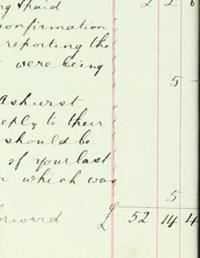 & paid 2 2 6
confirmation
reporting the
were being
5
Ashurst
reply to their
should be
of your last
which was
5
forward £ 52 14 4